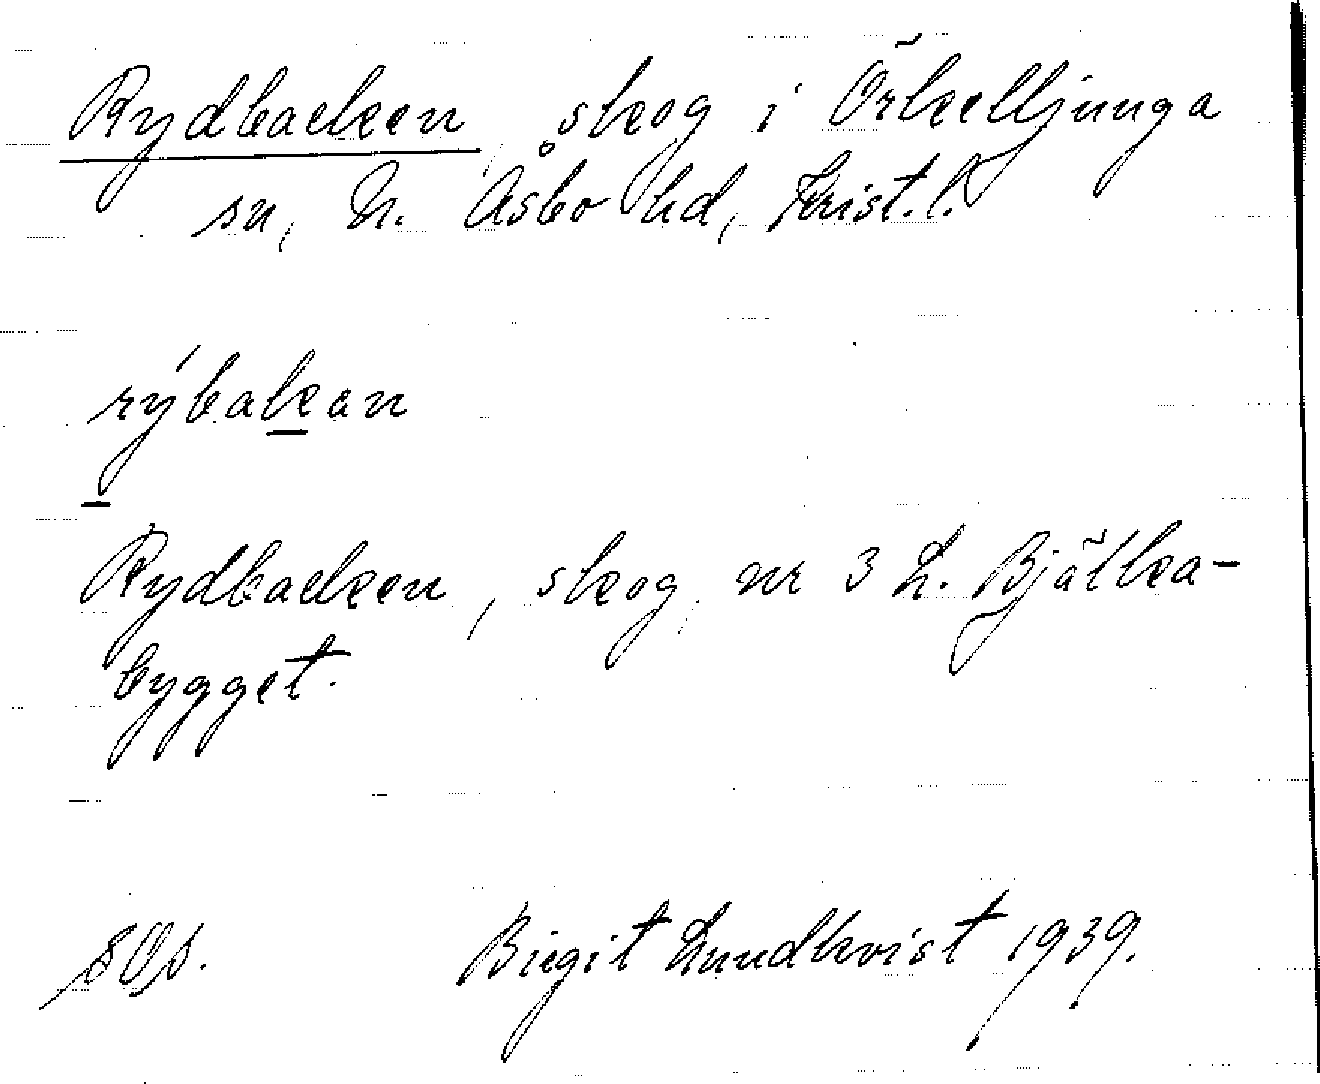 Rydbacken, skog i Örkelljunga
sn, N. Åsbo hd, Krist. l.
rýbakan
Rydbacken, skog, nr 3 L. Bjälka-
bygget.
sOs.
Birgit Lundkvist 1939.